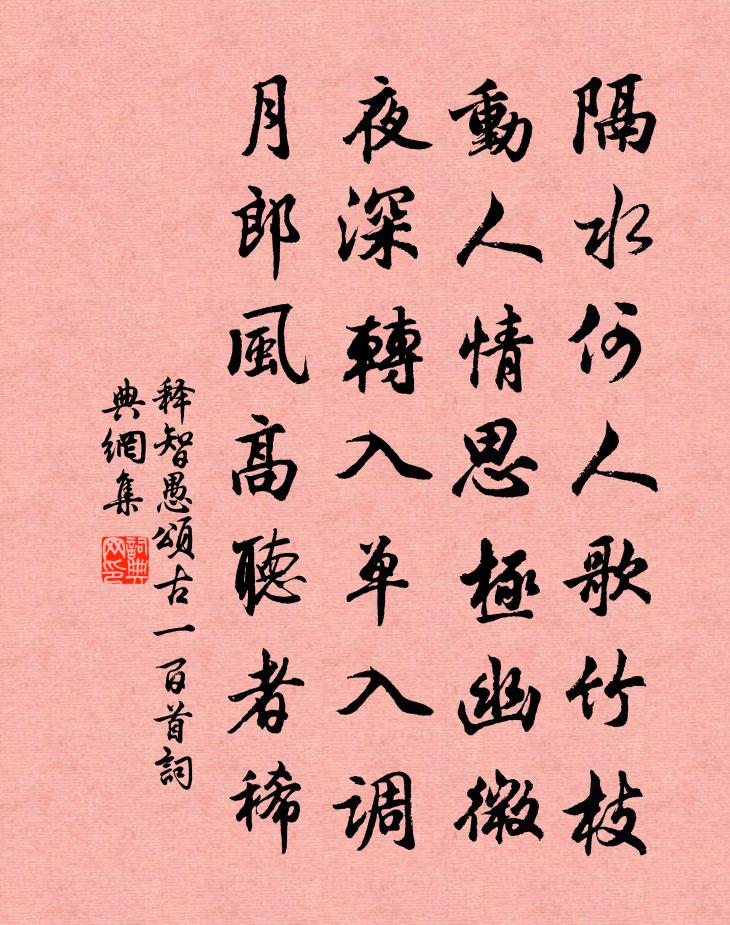 隔水何人歌竹枝
動人情思極幽微
夜深轉入单入调
月郎風高聽者稀
释智愚頌古一百首詞
典網集
詞典
网印